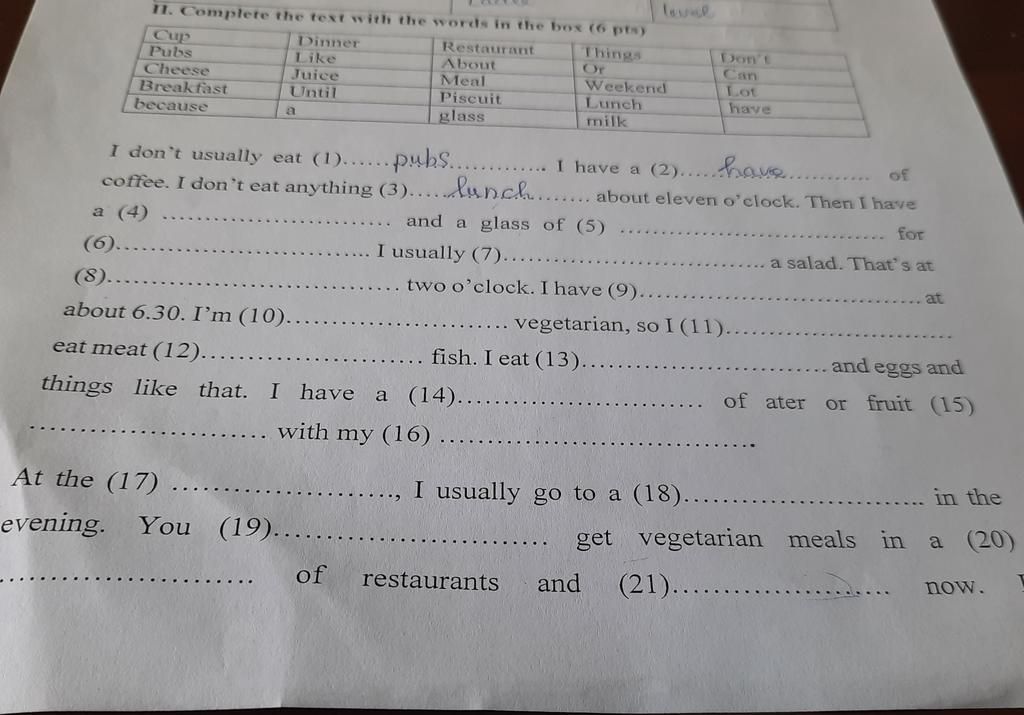 level
II. Complete the text with the words in the box (6 pts)
Cup Dinner Restaurant Things Don't
Pubs Like About Or Can
Cheese Juice Meal Weekend Lot
Breakfast Until Piscuit Lunch have
because a glass milk
I don't usually eat (1)......pubs.............. I have a (2).....have............ of
coffee. I don't eat anything (3).....lunch....... about eleven o'clock. Then I have
a (4) .............................. and a glass of (5) .................................. for
(6)................................. I usually (7).................................. a salad. That's at
(8)...................................... two o'clock. I have (9).................................... at
about 6.30. I'm (10)............................ vegetarian, so I (11).............................
eat meat (12)............................ fish. I eat (13)............................... and eggs and
things like that. I have a (14)............................... of ater or fruit (15)
.............................. with my (16) .......................................
At the (17) ............................, I usually go to a (18).............................. in the
evening. You (19)................................. get vegetarian meals in a (20)
............................ of restaurants and (21)......................... now.